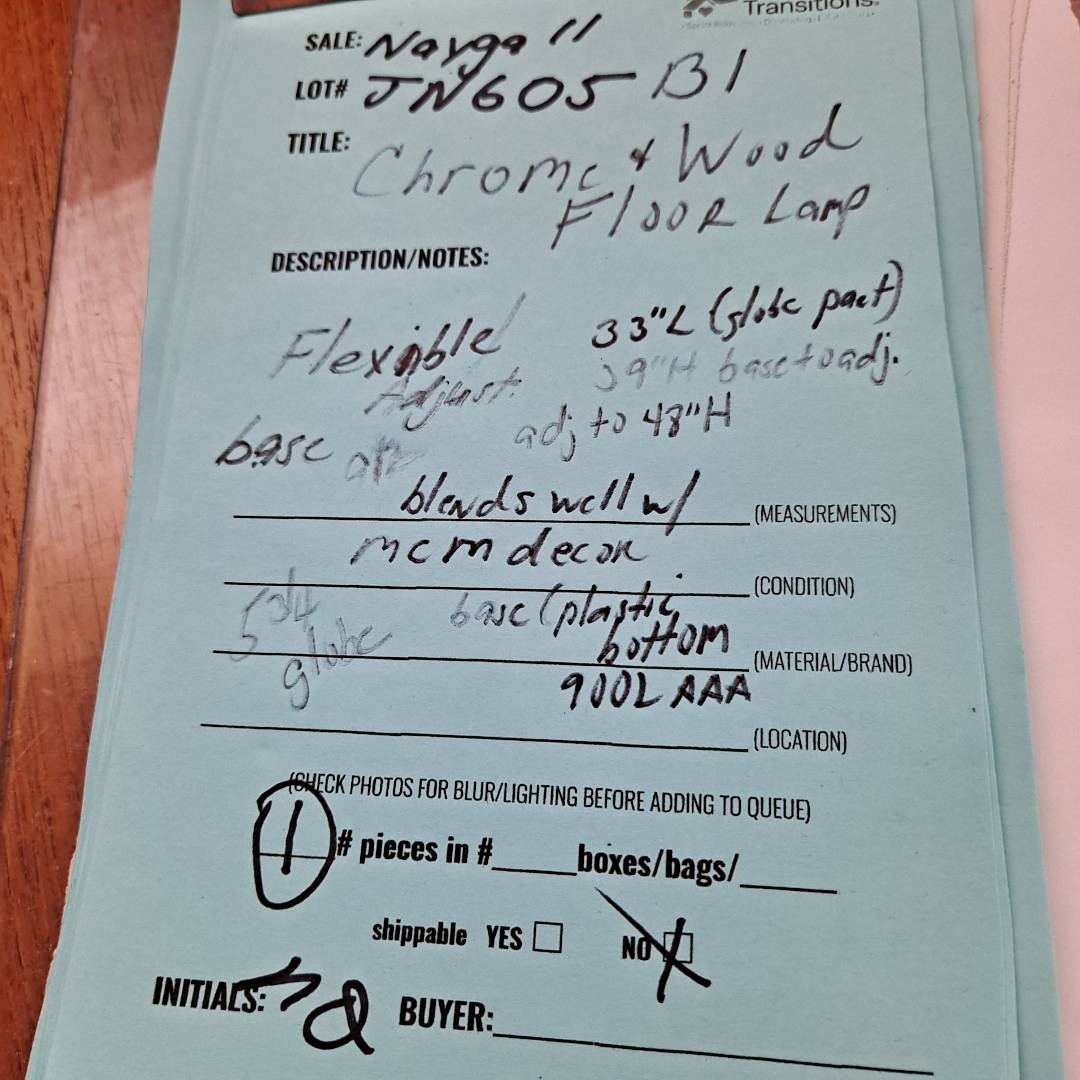 Transitions.
SALE: Nayga 11
LOT# JN605 B1
TITLE: Chrome & Wood
Floor Lamp
DESCRIPTION/NOTES:
Flexible 33"L (globe part)
Adjust. 9"H base to adj.
base adj to 48"H
blends well w/ (MEASUREMENTS)
mcm decor (CONDITION)
5 3/4 globe base (plastic bottom (MATERIAL/BRAND)
900L AAA (LOCATION)
(CHECK PHOTOS FOR BLUR/LIGHTING BEFORE ADDING TO QUEUE)
1 # pieces in #______boxes/bags/______
shippable YES NO X
INITIALS: BUYER:______